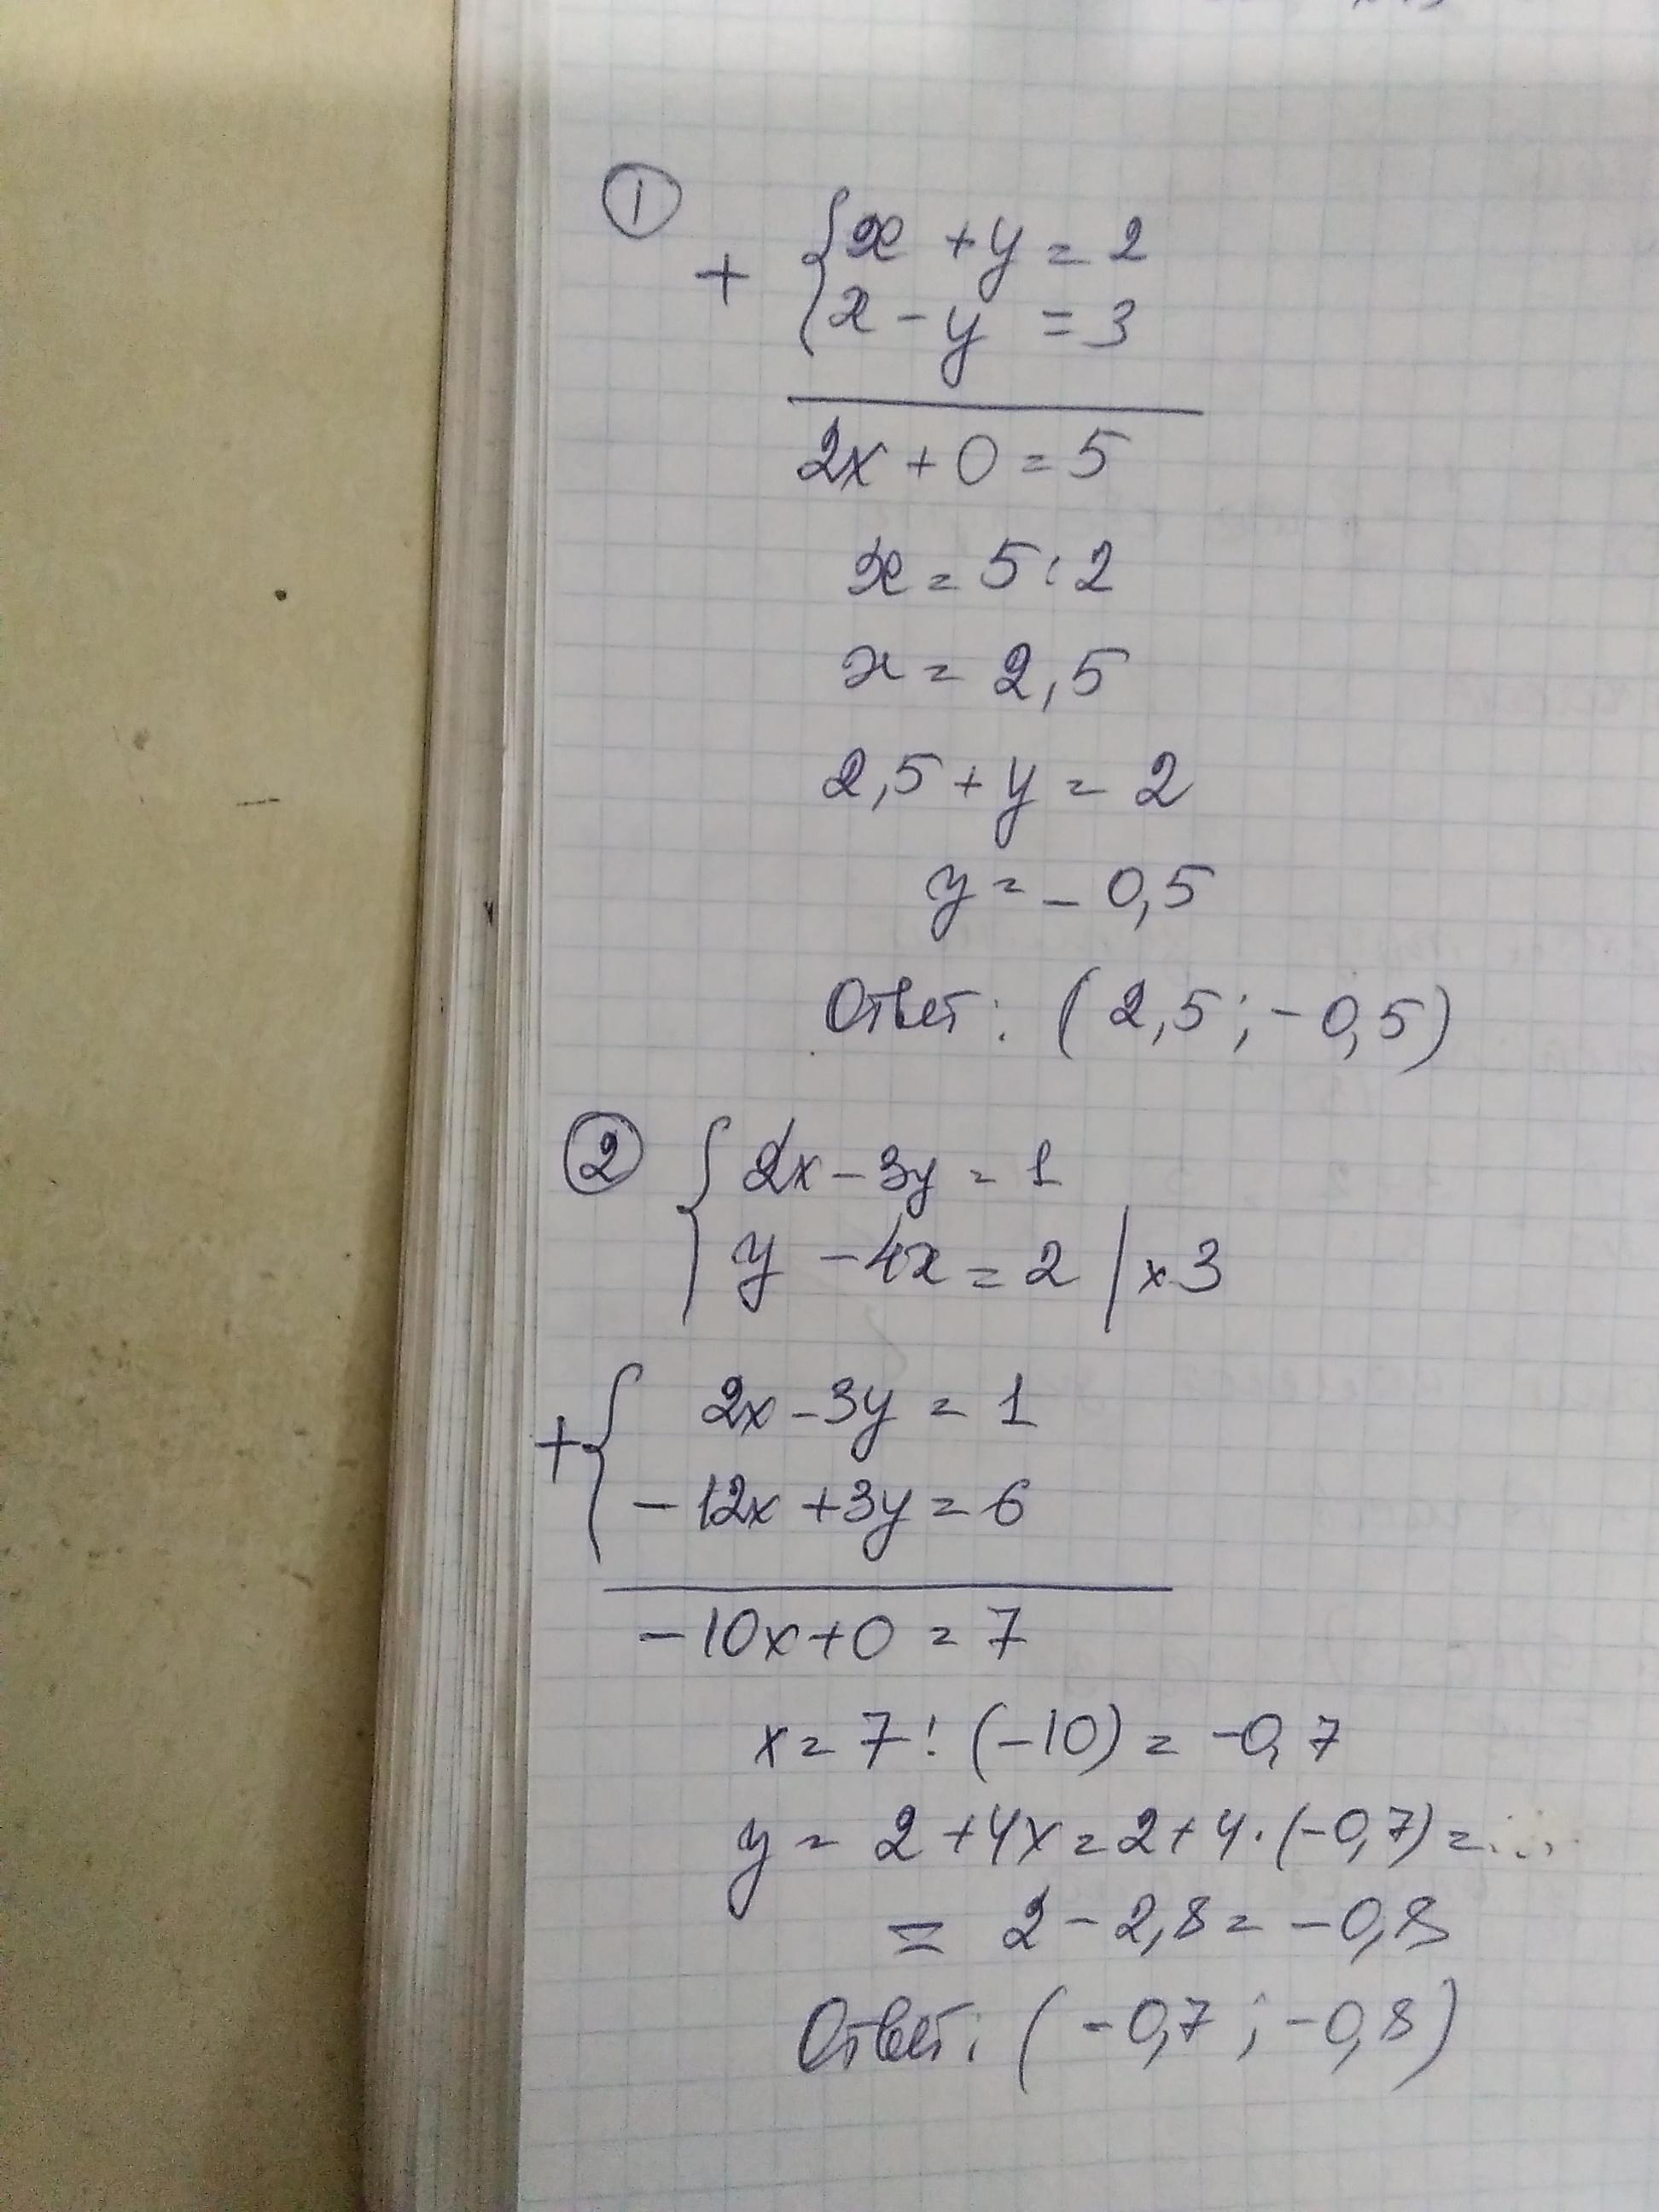 ①
+ { x + y = 2
x - y = 3
2x + 0 = 5
x = 5 : 2
x = 2,5
2,5 + y = 2
y = - 0,5
Ответ: (2,5 ; - 0,5)
② { 2x - 3y = 1
y - 4x = 2 | × 3
+ { 2x - 3y = 1
- 12x + 3y = 6
- 10x + 0 = 7
x = 7 : (-10) = -0,7
y = 2 + 4x = 2 + 4 · (-0,7) =
= 2 - 2,8 = - 0,8
Ответ: ( - 0,7 ; - 0,8 )